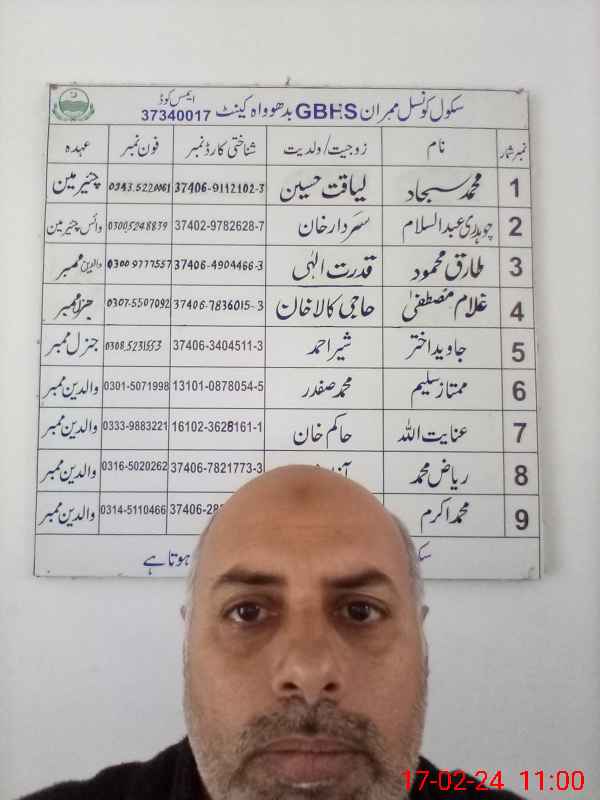 سکول کونسل ممبران GBHS بدھو واہ کینٹ ایمس کوڈ 37340017
نمبر شمار نام زوجیت/ولدیت شناختی کارڈ نمبر فون نمبر عہدہ
1 محمد سجاد لیاقت حسین 37406-9112102-3 چئیرمین
2 چوہدری عبدالسلام سردار خان 37402-9782628-7 03005248839 وائس چئیرمین
3 طارق محمود قدرت الٰہی 37406-4904466-3 0300-9777557 والدین ممبر
4 غلام مصطفیٰ حاجی کالا خان 37406-7836015-3 0307-5507092 جنرل ممبر
5 جاوید اختر شیر احمد 37406-3404511-3 0308-5231553 جنرل ممبر
6 ممتاز سلیم محمد صفدر 13101-0878054-5 0301-5071998 والدین ممبر
7 عنایت اللہ حاکم خان 16102-3628161-1 0333-9883221 والدین ممبر
8 ریاض محمد 37406-7821773-3 0316-5020262 والدین ممبر
9 محمد اکرم 0314-5110466 والدین ممبر
ہوتا ہے
17-02-24 11:00